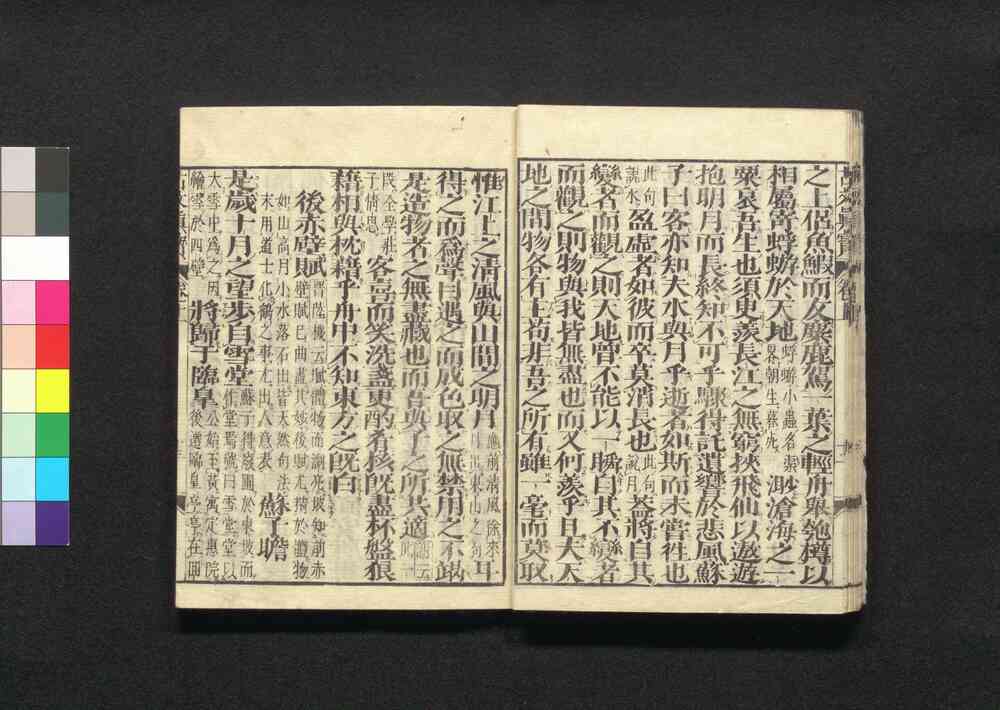 之上侶魚鰕而友麋鹿駕一葉之輕舟舉匏樽以
相屬寄蜉蝣於天地 蜉蝣小蟲名 朝生暮死 渺滄海之一
粟哀吾生也須臾羨長江之無窮挾飛仙以遨遊
抱明月而長終知不可乎驟得託遺響於悲風蘇
子曰客亦知夫水與月乎逝者如斯而未嘗往也
此句說水 盈虛者如彼而卒莫消長也 此句說月 蓋將自其
變者而觀之則天地曾不能以一瞬自其不變者
而觀之則物與我皆無盡也而又何羨乎且夫天
地之間物各有主苟非吾之所有雖一毫而莫取
惟江上之清風與山間之明月 應前清風徐來月出東山之句 耳
得之而爲聲目遇之而成色取之無禁用之不竭
是造物者之無盡藏也而吾與子之所共適
客喜而笑洗盞更酌肴核旣盡杯盤狼
藉相與枕藉乎舟中不知東方之旣白
後赤壁賦 賦體物而瀏亮坡知前赤壁賦已曲盡其妙後賦尤精於體物
如山高月小水落石出皆天然句法末用道士化鶴之事尤出人意表 蘇子瞻
是歲十月之望步自雪堂 蘇子得廢圃於東坡而作堂焉號曰雪堂堂以
大雪中爲之因繪雪於四壁 將歸于臨皐 公始至黃寓定惠院後遷臨皐亭亭在
古文眞寶